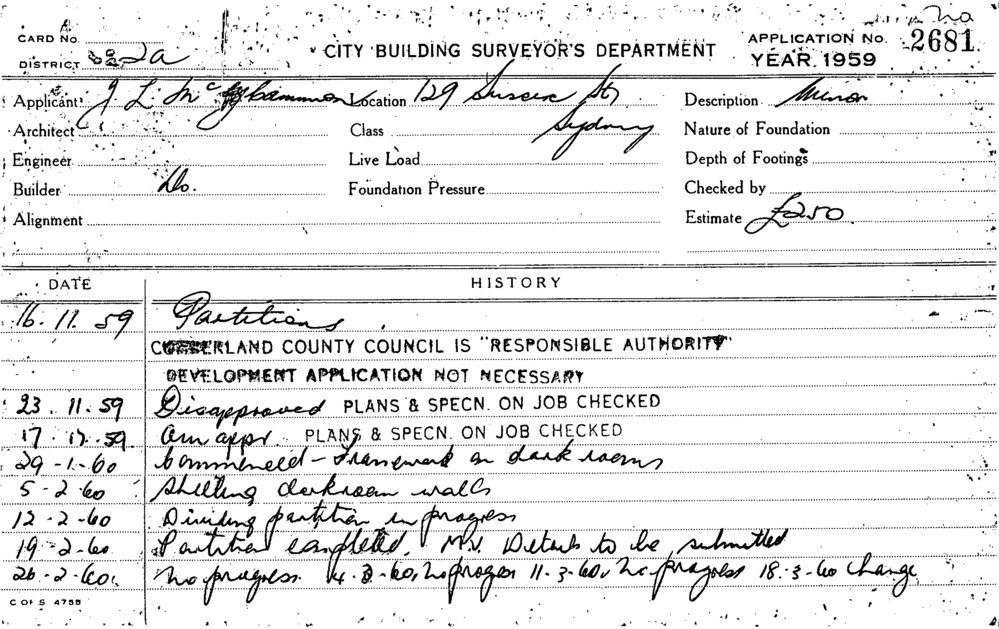 na
CARD No.
CITY BUILDING SURVEYOR'S DEPARTMENT
APPLICATION No. 2681
DISTRICT 2a
YEAR 1959
Applicant J L Mc Location 129 Sussex St Description Minor
Architect Class Sydney Nature of Foundation
Engineer Live Load Depth of Footings
Builder Do. Foundation Pressure Checked by
Alignment Estimate £250
DATE HISTORY
16. 11. 59 Partitions.
CUMBERLAND COUNTY COUNCIL IS "RESPONSIBLE AUTHORITY"
DEVELOPMENT APPLICATION NOT NECESSARY
23. 11. 59 Disapproved PLANS & SPECN. ON JOB CHECKED
17. 12. 59 Am appr. PLANS & SPECN. ON JOB CHECKED
29 - 1 - 60 Commenced - Framework on dark rooms
5 - 2 - 60 Sheeting darkroom walls
12 - 2 - 60 Dividing partition in progress
19 - 2 - 60 Partition completed. M.V. Details to be submitted
26 - 2 - 60. No progress. 4. 3 - 60, No progress 11 - 3 - 60, No progress 18. 3 - 60 change
C OF S 4755